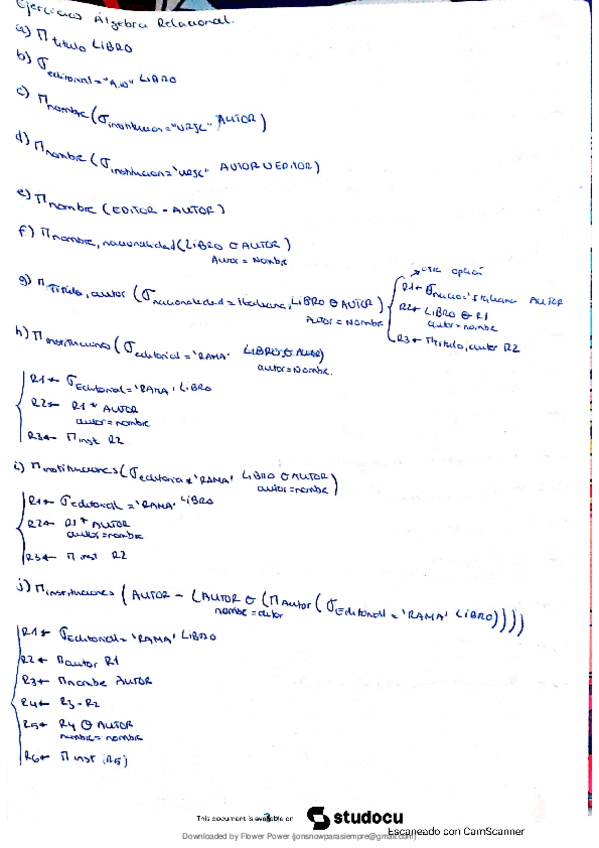 Ejercicios Álgebra Relacional.
a) Π titulo LIBRO
b) σ editorial="A.W" LIBRO
c) Π nombre (σ institucion="URJC" AUTOR)
d) Π nombre (σ institucion='URJC' AUTOR ∪ EDITOR)
e) Π nombre (EDITOR - AUTOR)
f) Π nombre, nacionalidad (LIBRO Θ AUTOR)
Autor = Nombre
g) Π Titulo, autor (σ nacionalidad = Italiana, LIBRO Θ AUTOR)
Autor = Nombre
otra opción
R1← σ nacio='Italiana AUTOR
R2← LIBRO Θ R1
autor=nombre
R3← Π titulo, autor R2
h) Π instituciones (σ editorial='RAMA' LIBRO Θ AUTOR)
autor=Nombre.
R1← σ Editorial='RAMA' LIBRO
R2← R1 * AUTOR
autor=nombre
R3← Π inst R2
i) Π instituciones (σ editorial='RAMA' LIBRO Θ AUTOR)
autor=nombre
R1← σ editorial='RAMA' LIBRO
R2← R1 * AUTOR
autor=nombre
R3← Π inst R2
j) Π instituciones (AUTOR - (AUTOR Θ (Π Autor (σ Editorial='RAMA' LIBRO))))
nombre=autor
R1← σ Editorial='RAMA' LIBRO
R2← Π autor R1
R3← Π nombre AUTOR
R4← R3-R2
R5← R4 Θ AUTOR
nombre=nombre
R6← Π inst (R5)
This document is available on studocu
Downloaded by Flower Power (jonsnowparasiempre@gmail.com)
Escaneado con CamScanner